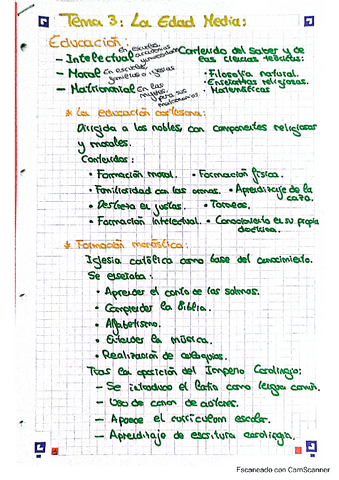 Tema 3: La Edad Media:
Educación:
- Intelectual En escuelas, academias y universidades Contenido del saber y de las ciencias
- Moral En escuelas, familias o iglesias • Filosofía natural.
• religiosas.
- Matrimonial En las mujeres para sus matrimonios • Matemáticas
* La educación cortesana:
Dirigida a los nobles con componentes religiosos
y morales.
Contenidos:
• Formación moral. • Formación física.
• Familiaridad con las armas. • Aprendizaje de la caza.
• Destreza en justas. • Torneos.
• Formación intelectual. • Conocimiento en su propia doctrina.
* Formación monástica:
Iglesia católica como base del conocimiento.
Se enseñaba:
• Aprender el canto de los salmos.
• Comprender la Biblia.
• Alfabetismo.
• Entender la música.
• Realización de
Tras la aparición del Imperio Carolingio:
- Se introduce el latín como lengua común.
- Uso de canon de autores.
- Aparece el currículum escolar.
- Aprendizaje de escritura carolingia.
Escaneado con CamScanner